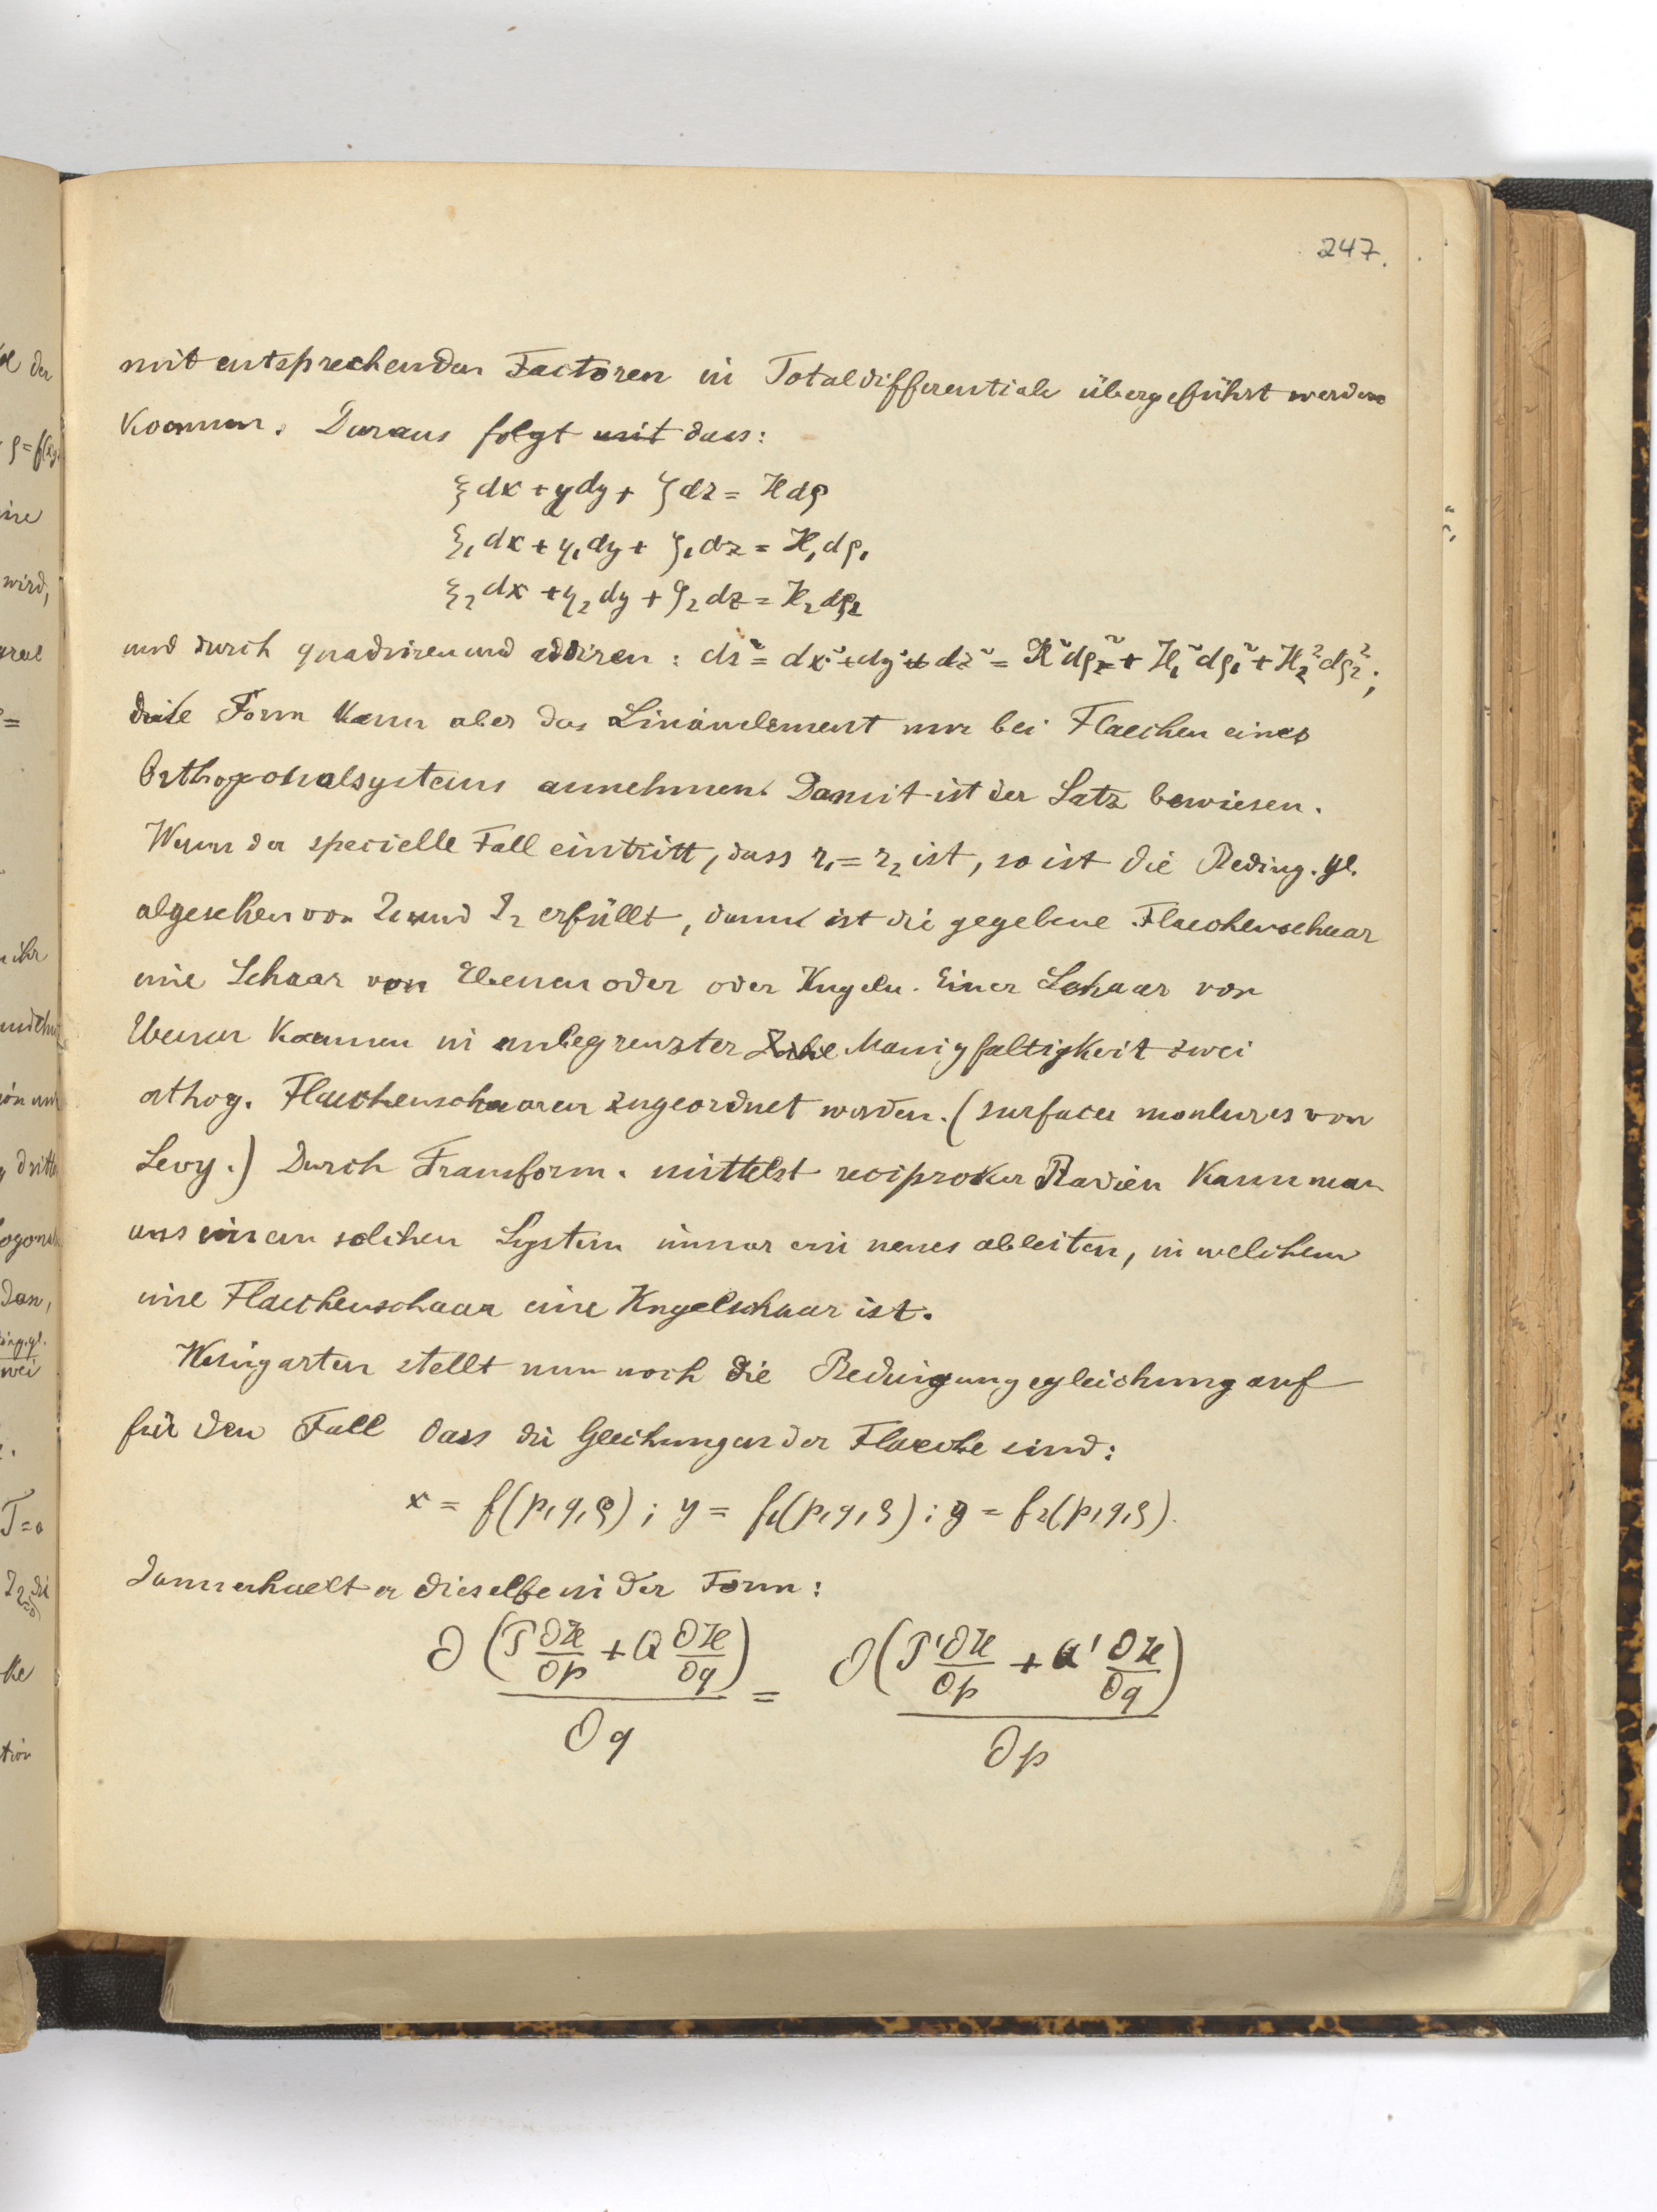 247.
mit entsprechenden Factoren in Totaldifferentiale übergeführt werden
koennen. Daraus folgt mit dass:
ξdx + ηdy + ζdz = Hdρ
ξ₁dx + η₁dy + ζ₁dz = H₁dρ₁
ξ₂dx + η₂dy + ζ₂dz = H₂dρ₂
und durch quadriren und addiren : ds² = dx² + dy² + dz² = H²dρ² + H₁²dρ₁² + H₂²dρ₂²;
diese Form kann aber das Linienelement nur bei Flaechen eines
Orthogonalsystems annehmen. Damit ist der Satz bewiesen.
Wenn der specielle Fall eintritt, dass r₁ = r₂ ist, so ist die Beding. gl.
abgesehen von und erfüllt, dann ist die gegebene Flaechenschaar
eine Schaar von Ebenen oder oder Kugeln. Einer Schaar von
Ebenen koennen in unbegrenzter Manigfaltigkeit zwei
othog. Flaechenschaaren zugeordnet werden. (surfaces moulures von
Levy.) Durch Transform. mittelst reciproker Radien kann man
aus einem solchen System immer ein neues ableiten, in welchem
eine Flaechenschaar eine Kugelschaar ist.
Weingarten stellt nun noch die Bedingungsgleichung auf
für den Fall dass die Gleichungen der Flaeche sind:
x = f(p,q,ρ) ; y = f₁(p,q,ρ) ; y = f₂(p,q,ρ).
Dann erhaelt er dieselbe in der Form:
∂(P ∂H/∂p + Q ∂H/∂q)/∂q = ∂(P' ∂H/∂p + Q' ∂H/∂q)/∂p